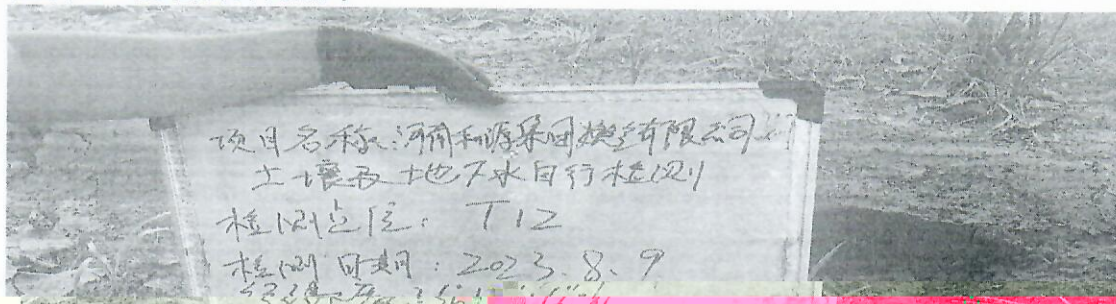 项目名称:河南利源集团燃气有限公司
土壤及地下水自行检测
检测点位: T12
检测日期: 2023.8.9